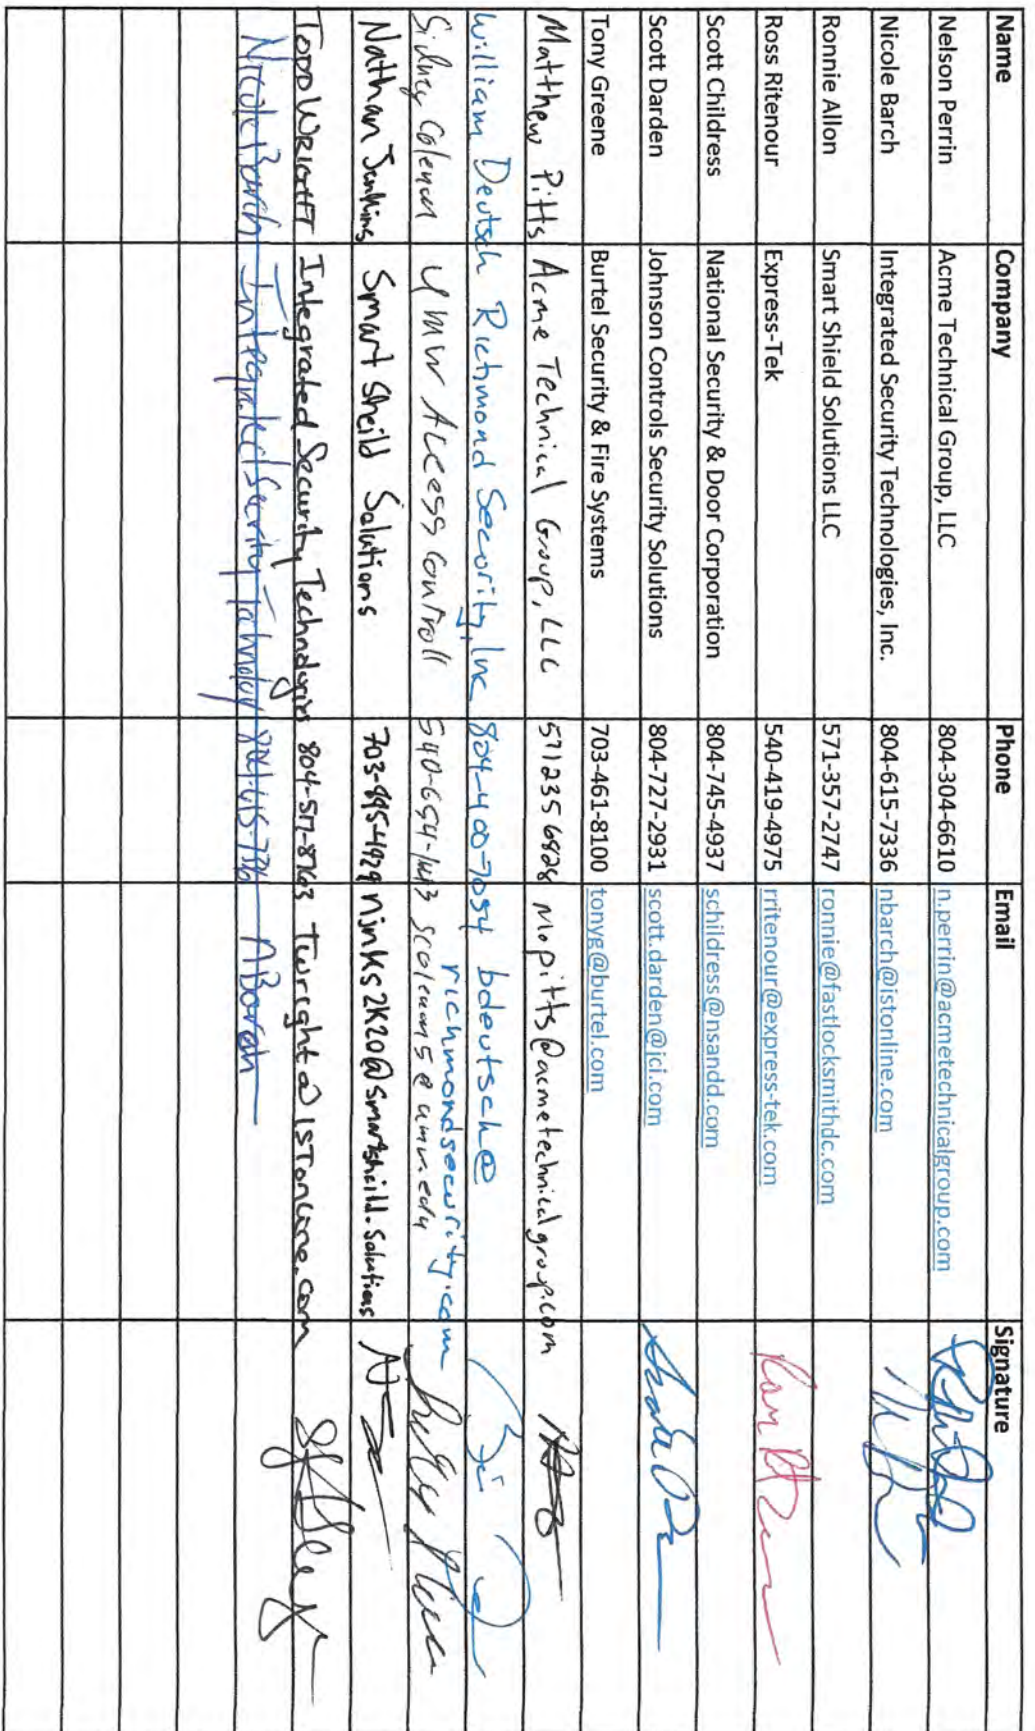 Name Company Phone Email Signature
Nelson Perrin Acme Technical Group, LLC 804-304-6610 n.perrin@acmetechnicalgroup.com
Nicole Barch Integrated Security Technologies, Inc. 804-615-7336 nbarch@istonline.com
Ronnie Allon Smart Shield Solutions LLC 571-357-2747 ronnie@fastlocksmithdc.com
Ross Ritenour Express-Tek 540-419-4975 rritenour@express-tek.com
Scott Childress National Security & Door Corporation 804-745-4937 schildress@nsandd.com
Scott Darden Johnson Controls Security Solutions 804-727-2931 scott.darden@jci.com
Tony Greene Burtel Security & Fire Systems 703-461-8100 tonyg@burtel.com
Matthew Pitts Acme Technical Group, LLC 571 235 6828 mopitts@acmetechnicalgroup.com
William Deutsch Richmond Security, Inc 804-400-7054 bdeutsch@
richmondsecurity.com
Sidney Coleman UMW Access Controll
Nathan Jenkins Smart Sheild Solutions 703-895-4929 njnks2k20@smartsheild.solutions
Todd Wright Integrated Security Technologies 804-517-8763 Twright@ISTonline.com
Nicole Barch Integrated Security Technology 804-615-7336 NBarch